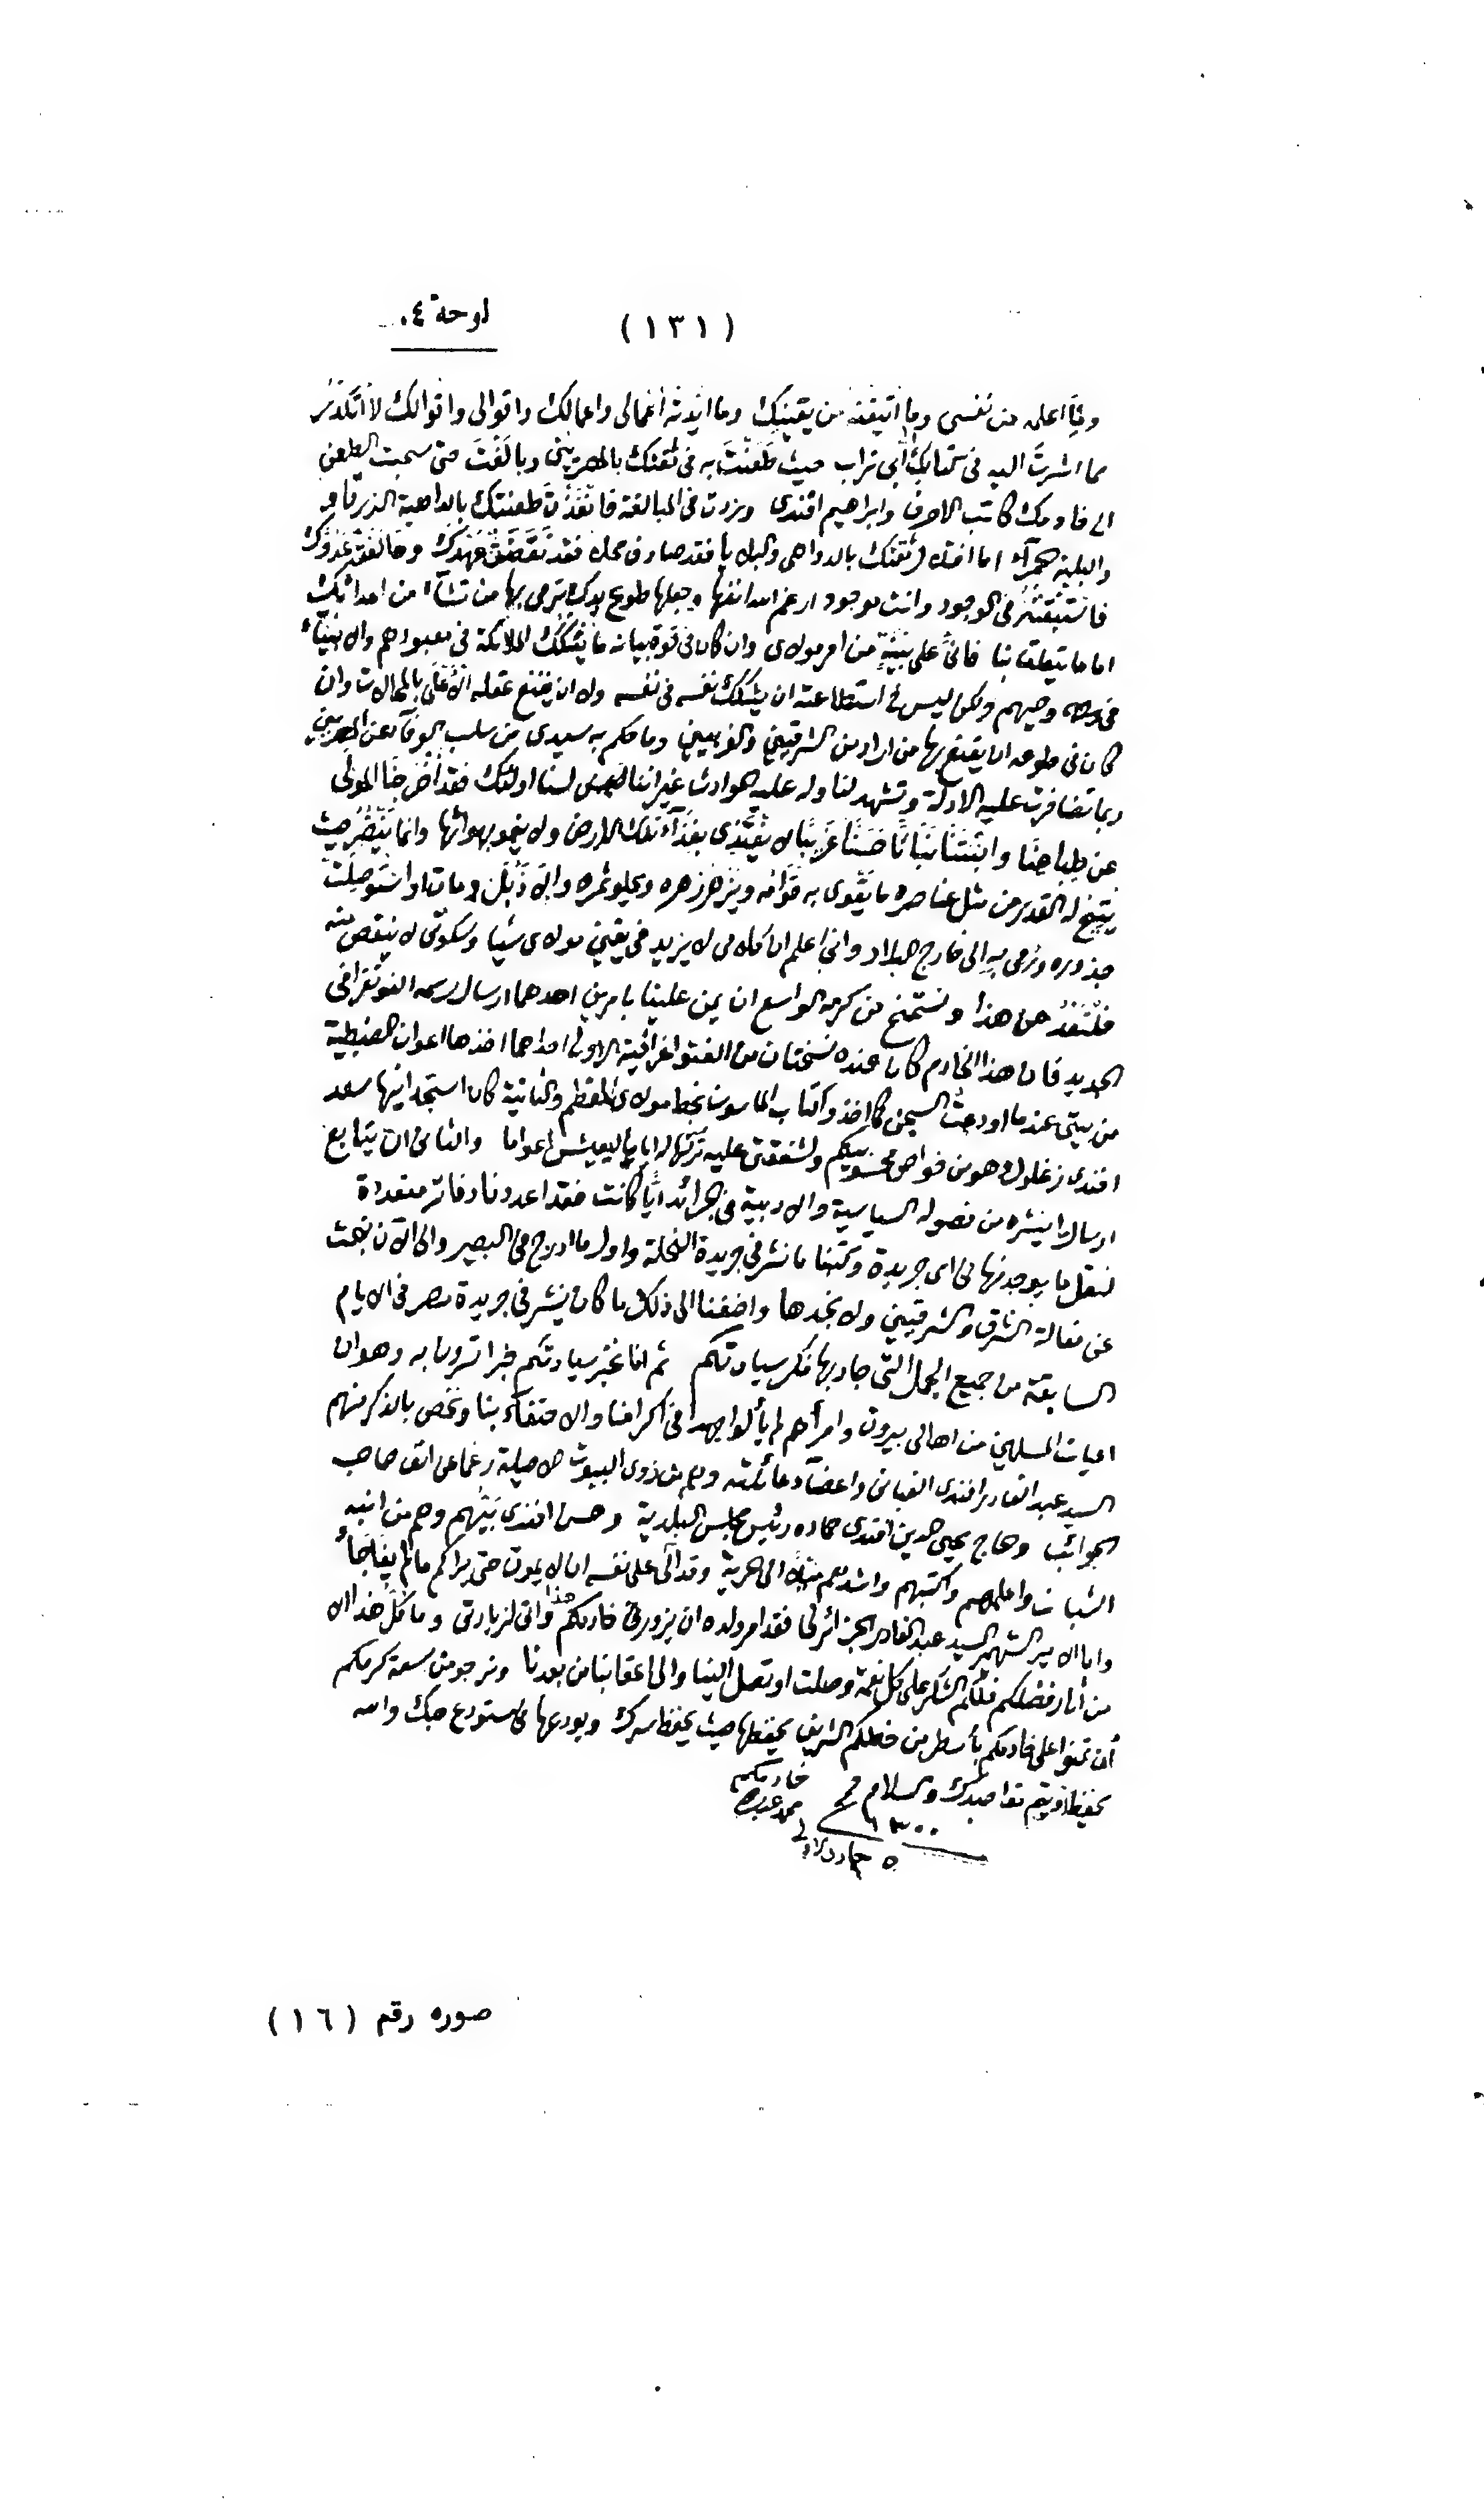 لوحة ٤٠
(١٣١)
ولما اعلمه من نفسى وما اتيقنه من يقينك وما ايدته افعالى واعمالك واقوالى واقوالك لا اتكدر
مما اشرت اليه فى كتابك لأبى تراب حيث طعنت به فى ثقتك بالمصريين وبالغت حتى سحبت الطعن
الى خادمك كاتب الاحرف وابراهيم افندى وزدت فى المبالغة فانفذت طعنتك بالداهية الزرقاء
والبلية الحمراء اما ثقتك بالدواهى والبلايا فقد صادف محله فقد نقضت عهدك وحالفت عدوك
فى الوجود وانت موجود ارغم الله انفها وجعلها طوع يدك ترمى بها من تشاء من اعدائك
اما ما يتعلق بنا فانى على بينة من امر مولاى وان كان فى قوة بيانه ما يشكك الملائكة فى معبودهم والانبياء
فى وحيهم ولكن ليس فى استطاعته ان يشكك نفسه فى نفسه ولا ان يقنع عقله الاعلى بالمحالات وان
كان فى طوعه ان يقنع بها من اراد من الشرقيين والغربيين وما حكم به سيدى من سلب الوفاء عن المصريين
ربما تضافرت عليه الادلة وتشهد لنا وله عليه الحوادث غير اننا لسنا اولئك فقد اخرجنا المولى
عن طباعنا وانبتنا نباتا حسنا غريبا لا يتغذى بغذاء تلك الارض ولا ينمو بهوائها وانما ينضر حيث
يتيح له القدر من مثل عناصره ما يقوى به قوامه ويزهر زهره ويحلو ثمره والا ذبل ومات او استوصلت
جذوره ورمى به الى خارج البلاد وانى اعلم ان كلامى لا يزيد فى يقين مولاى شيئا وسكوتى لا ينقص منه
فلنعد عن هذا ونستمنح من كرمه الواسع ان يمن علينا بامرين احدهما ارسال رسمه الفوتغرافى
الجديد فان هذا الخادم كان عنده نسختان من الفتوغرافية الاولى احداهما اخذها اعوان الضبطية
من بيتى عندما اودعت السجن كما اخذوا كتاب الماسون بخط مولاى المعظم والثانية كان استجدانيها سعد
افندى زغلول وهو من خواص محسوبيكم ولشفقتى عليه تركتها له اياما ليعيش اعواما والثانى ان يتابع
ارسال ما ينشره من فصوله السياسية والادبية فى الجرائد ايا كانت فقد اعددنا دفاتر متعددة
لنقل ما يوجد منها فى اى جريدة وكتبنا ما نشر فى جريدة النحلة واول ما ادرج فى البصير والى الآن نبحث
عن مقالة الشرق والشرقيين ولا نجدها واضفنا الى ذلك ما كان ينشر فى جريدة مصر فى الايام
السابقة من جميع الجمل التى جاد بها فكر سيادتكم ثم انا نخبر سيادتكم خبرا تسرون به وهو ان
اعيان المسلمين من اهالى بيروت وامرأهم لم يألوا جهدا فى اكرامنا والاحتفاء بنا ونخص بالذكر منهم
السيد عبد القادر افندى القبانى واعضاء عائلته وهم من ذوى البيوت الاصيلة رغما عن انف صاحب
الجوائب وحاج محيى الدين افندى حماده رئيس مجلس البلدية وحسن افندى بيهم وهم من انبه
الشبان واعلمهم واكتبهم واشدهم ميلا الى الحرية وقد آلى على نفسه ان لا يموت حتى يراكم ما لم يفاجأ
واما الامير الشهير السيد عبد القادر الجزائرلى فقد امر ولده ان يزورنى خادمكم هذا واتى لزيارتى وما كل هذا الا
من آثار فضلكم فلكم الشكر على كل نعمة وصلت او تصل الينا والى اعقابنا من بعدنا ونرجو من سعة كرمكم
أن تمنوا على خادمكم بأسطر من خطكم الشريف يحفظها حيث يحفظ سرك ويودعها فى مستودع حبك والله
يحفظك ويتم مقاصدك والسلام
خادمكم
محمد عبده
١٣٠٠
٥ جماد الاولى
صوره رقم (١٦)